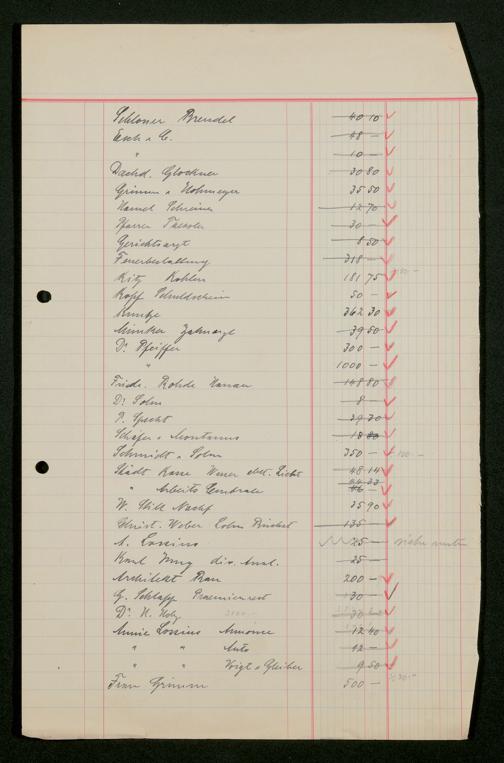 Schloner Brendel 40 10
Esch & C. 48 —
" 10 —
Dachd. Glockner 30 80
Grimm & Hohmeyer 35 50
Hamel Schreiner 12 70
Pfarrer 30 —
Gerichtsarzt 8 50
Feuerbestattung 318 —
Ritz Kohlen 181 75
Kopf Schuldschein 50 —
Kuntze 362 30
Zahnarzt 39 50
Dr. Pfeiffer 300 —
" 1000 —
Friedr. Rohde Hanau 148 80
Dr. Solm 8 —
P. Specht 29 30
Schäfer & Montanus 18 80
Schmidt & Solm 350 — 100 —
Städt Kasse Wasser elekt. Licht 48 14
" Arbeits Zentrale 46 —
W. Still Nachf 35 90
Christ. Weber Sohn 135 —
A. Lossius 25 — siehe unten
Karl Jung div. Ausl. 25 —
Architekt Rau 200 —
G. Schlapp Praemienrest 30 —
Dr. H. Holz 30
Annie Lossius Annonce 12 40
" " Auto 12 —
" " Voigt & Gleiber 9 50
Frau Grimm 500 —